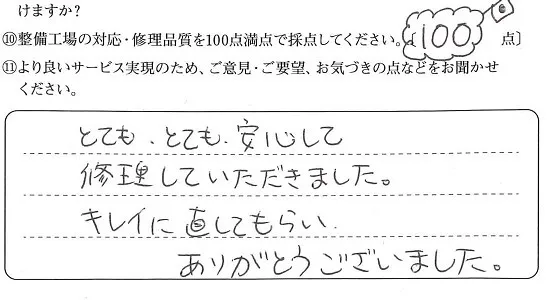 けますか？
⑩整備工場の対応・修理品質を100点満点で採点してください。〔100点〕
⑪より良いサービス実現のため、ご意見・ご要望、お気づきの点などをお聞かせ
ください。
とても、とても、安心して
修理していただきました。
キレイに直してもらい、
ありがとうございました。